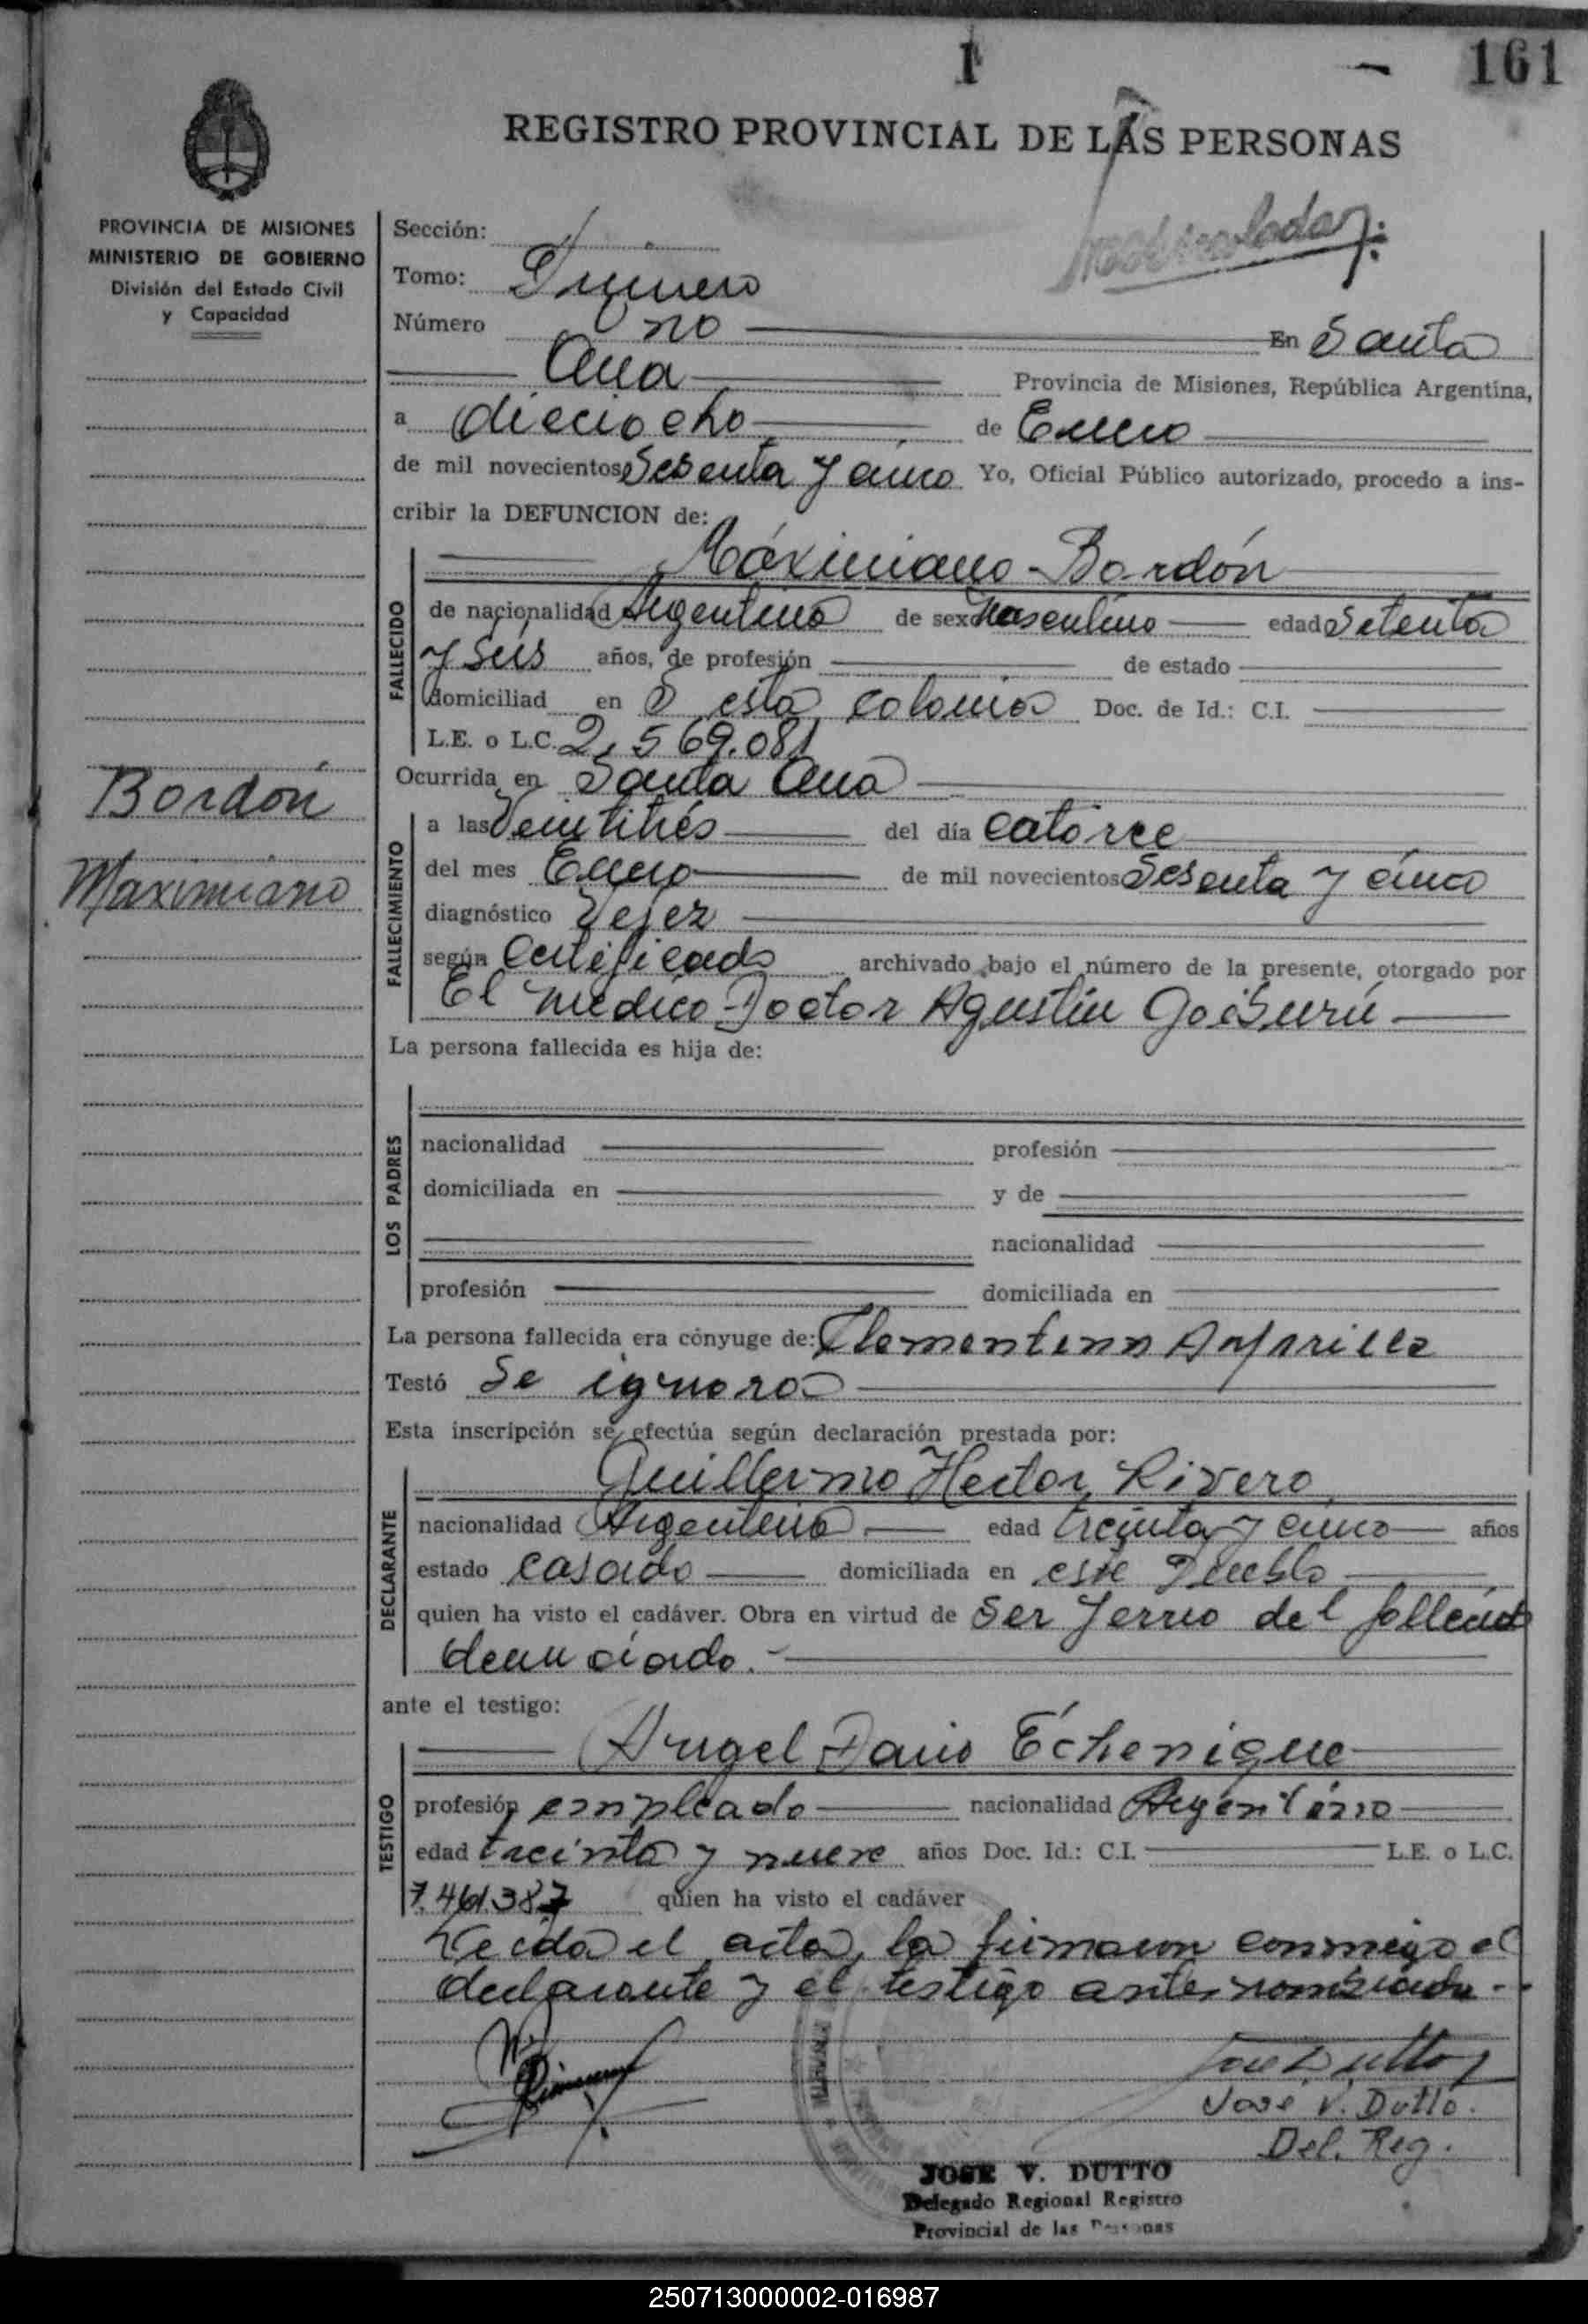 1 - 161
REGISTRO PROVINCIAL DE LAS PERSONAS
PROVINCIA DE MISIONES
MINISTERIO DE GOBIERNO
División del Estado Civil
y Capacidad
Bordón
Maximiano
Sección:
Tomo: Primero
Número Uno En Santa
Ana Provincia de Misiones, República Argentina,
a dieciocho de Enero
de mil novecientos Sesenta y cinco Yo, Oficial Público autorizado, procedo a ins-
cribir la DEFUNCION de:
Máximiano Bordón
FALLECIDO
de nacionalidad Argentina de sexo Masculino edad Setenta
y Seis años, de profesión de estado
domiciliad en esta colonia Doc. de Id.: C.I.
L.E. o L.C. 2.569.081
Ocurrida en Santa Ana
FALLECIMIENTO
a las Veintitrés del día catorce
del mes Enero de mil novecientos Sesenta y cinco
diagnóstico Vejez
según Certificado archivado bajo el número de la presente, otorgado por
El médico Doctor Agustín Goiburú
La persona fallecida es hija de:
LOS PADRES
nacionalidad profesión
domiciliada en y de
nacionalidad
profesión domiciliada en
La persona fallecida era cónyuge de: Clementina
Testó Se ignora
Esta inscripción se efectúa según declaración prestada por:
Guillermo Hector Rivero
DECLARANTE
nacionalidad Argentina edad treinta y cinco años
estado casado domiciliada en este Pueblo
quien ha visto el cadáver. Obra en virtud de Ser Yerno del
denunciado.
ante el testigo:
Angel Dario Echenique
TESTIGO
profesión empleado nacionalidad Argentino
edad treinta y nueve años Doc. Id.: C.I. L.E. o L.C.
7.461.387 quien ha visto el cadáver
Leida el acta, la firmaron conmigo el
declarante y el testigo
José V. Dutto.
Del. Reg.
JOSE V. DUTTO
Delegado Regional Registro
Provincial de las Personas
250713000002-016987